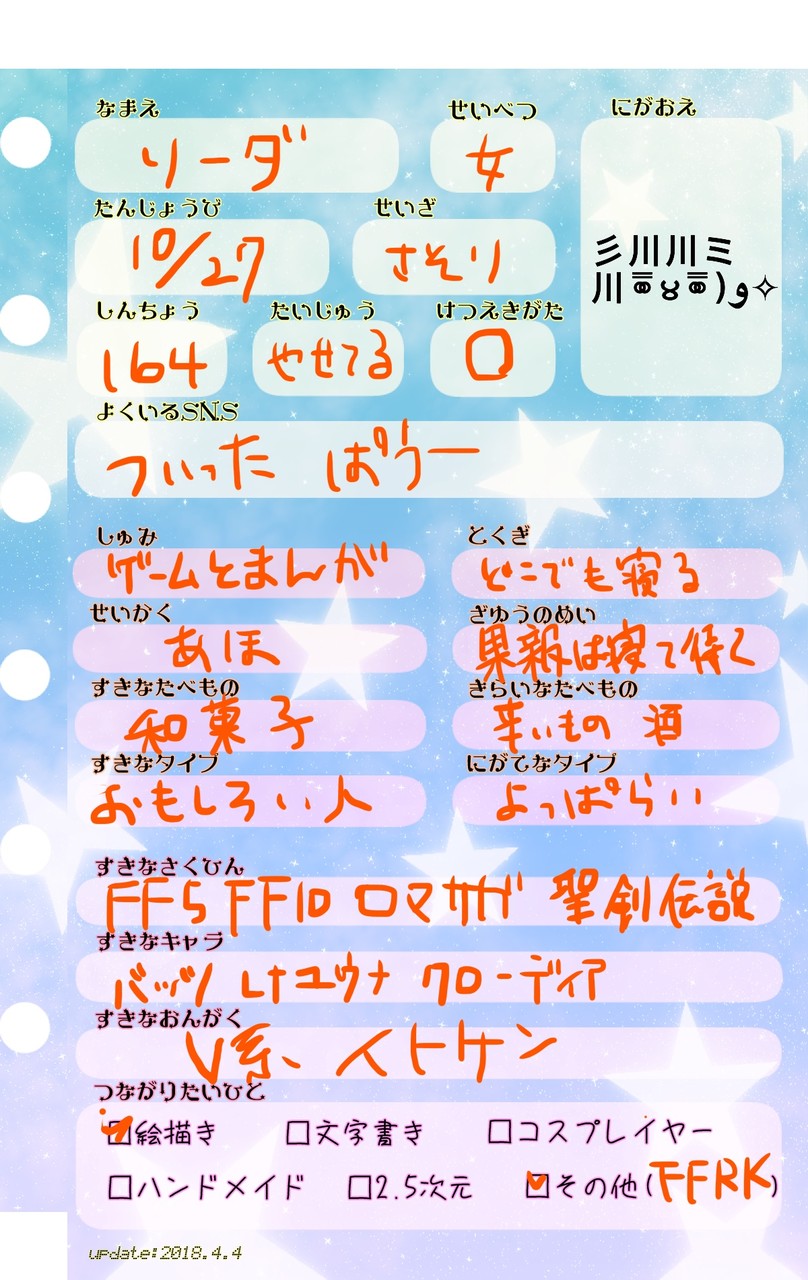 なまえ せいべつ にがおえ
リーダ 女
たんじょうび せいざ
10/27 さそり
彡川川ミ
しんちょう たいじゅう けつえきがた
164 やせてる O
よくいるSNS
ついった ぱうー
しゅみ とくぎ
ゲームとまんが どこでも寝る
せいかく ざゆうのめい
あほ 果報は寝て待て
すきなたべもの きらいなたべもの
和菓子 辛いもの 酒
すきなタイプ にがてなタイプ
おもしろい人 よっぱらい
すきなさくひん
FF5 FF10 ロマサガ 聖剣伝説
すきなキャラ
バッツ レナ ユウナ クローディア
すきなおんがく
V系、イトケン
つながりたいひと
絵描き 文字書き コスプレイヤー
ハンドメイド 2.5次元 その他(FFRK)
update:2018.4.4